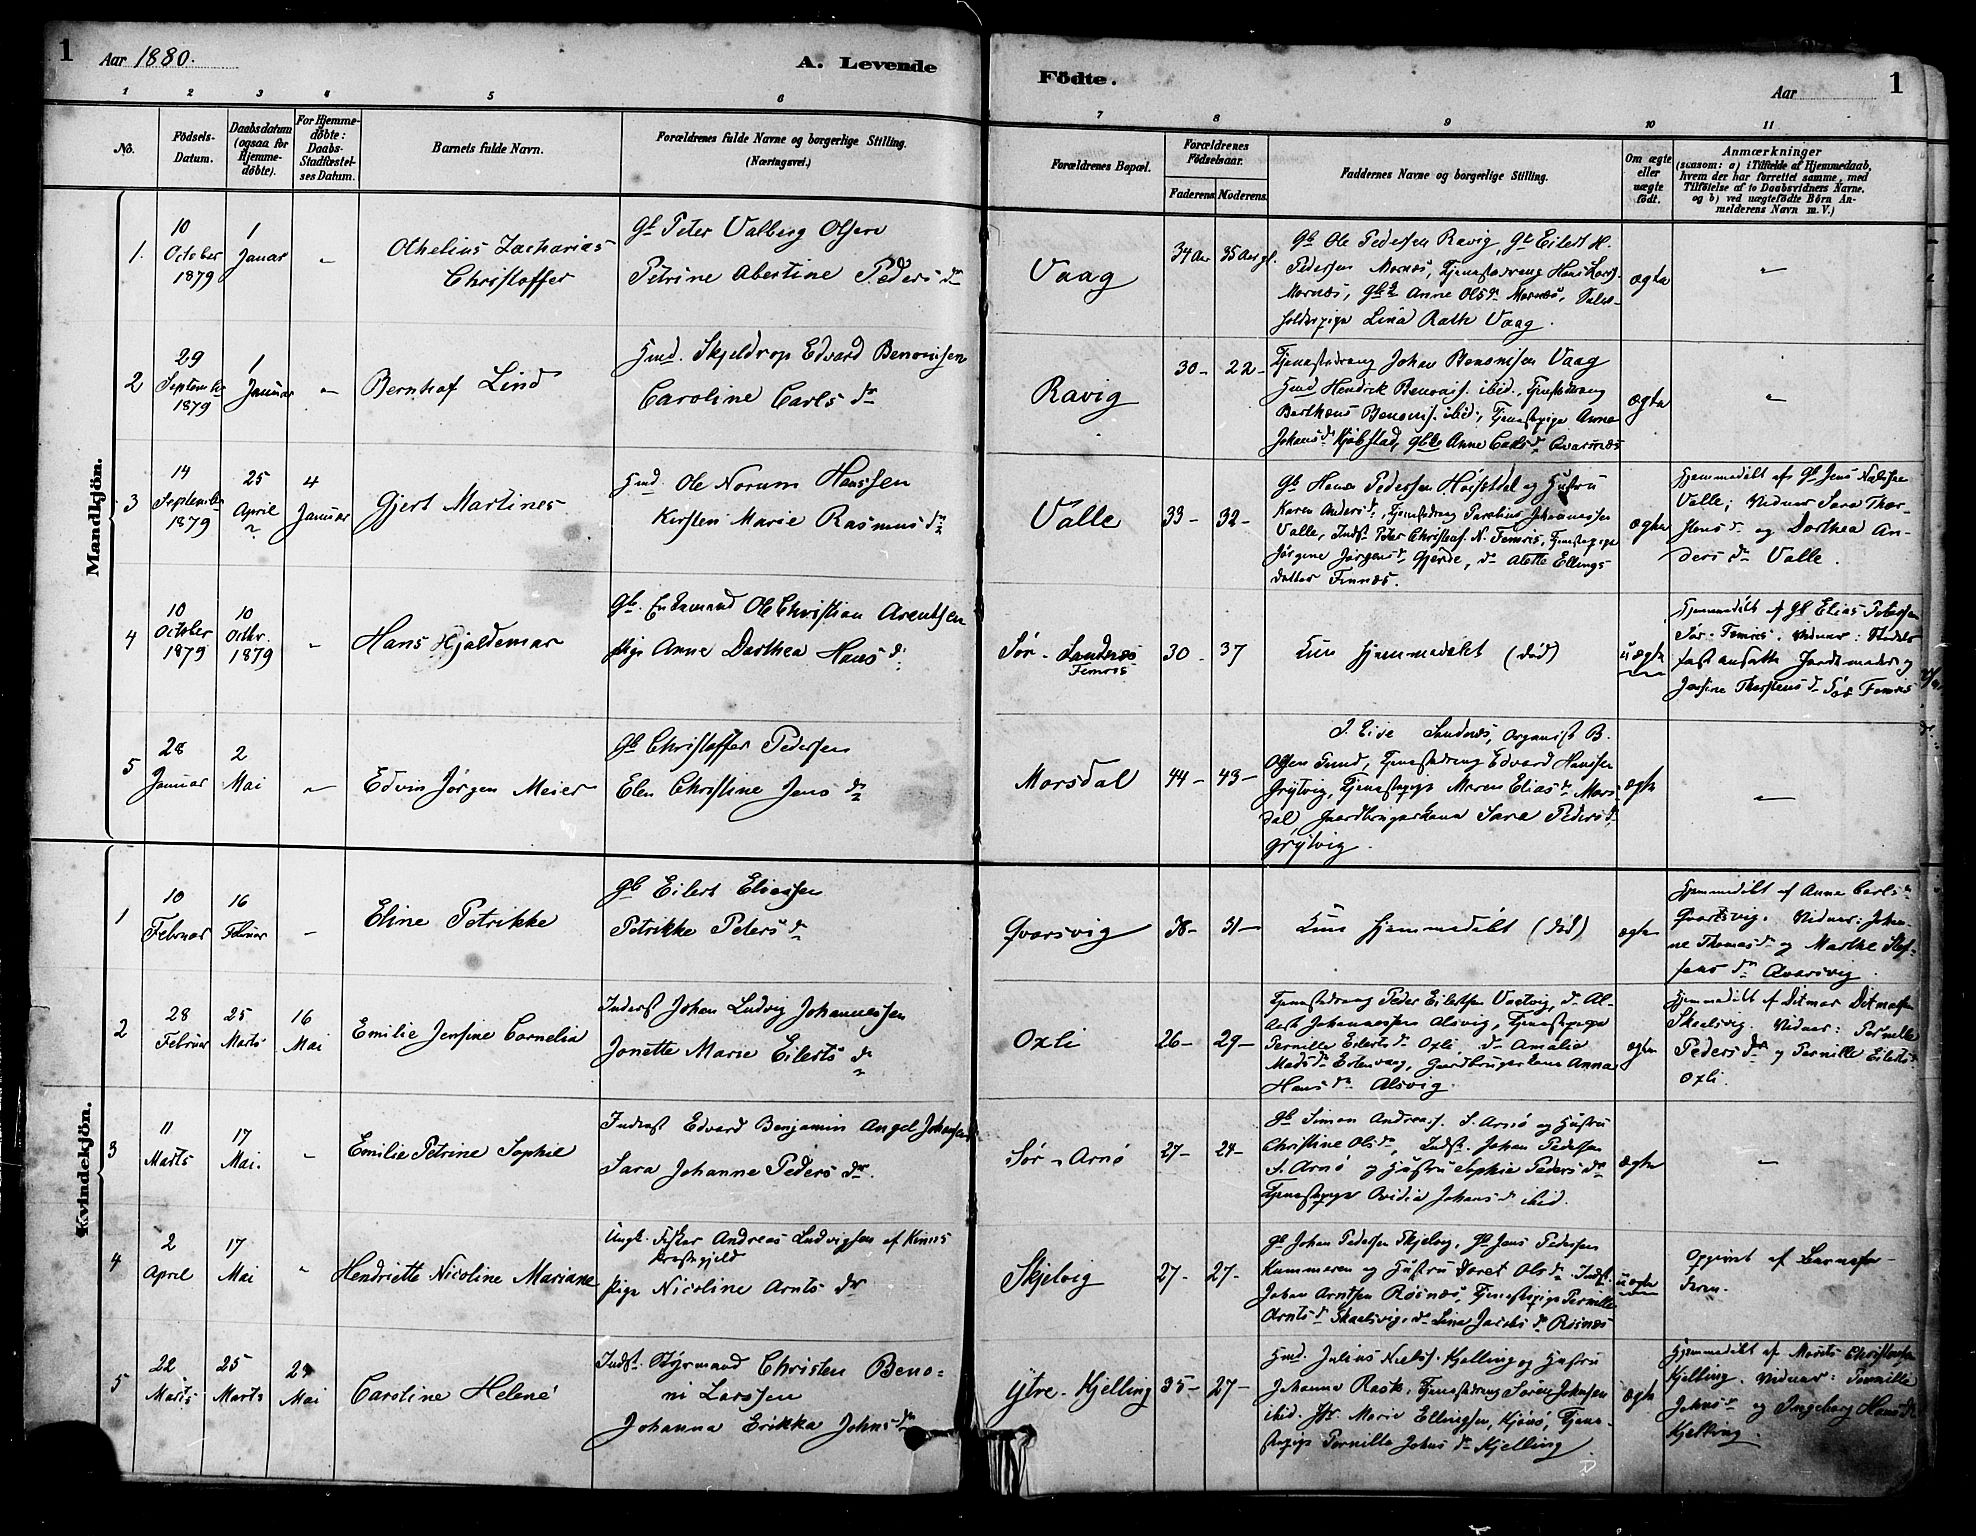 1
Aar 1880.
A. Levende
Födte.
Aar
1
1 2 3 4 5 6
7 8 9 10 11
No.
Födsels-
Datum.
Daabsdatum
(ogsaa for
Hjemme-
döbte).
For Hjemme-
döbte:
Daabs-
Stadfæstel-
ses Datum.
Barnets fulde Navn.
Forældrenes fulde Navne og borgerlige Stilling.
(Næringsvei.)
Forældrenes Bopæl.
Forældrenes
Födselsaar.
Faderens
Moderens.
Faddernes Navne og borgerlige Stilling.
Om ægte
eller
uægte
födt.
Anmærkninger
(saasom: a) i Tilfælde af Hjemmedaab,
hvem der har forrettet samme, med
Tilföielse af to Daabsvidners Navne,
og b) ved uægtefödte Börn An-
melderens Navn m. V.)
Mandkjön.
1.
10
October
1879
1
Januar
"
Othelius Zacharias
Christoffer
Gb Peter Valberg Olsen
Petrine Abertine Pedersdr
Vaag
34 Aar
35 Aar gl.
Gb Ole Pedersen Ravig, Gb Eilert H.
Pedersen Mornæs, Tjenestedreng Hans Lars.
Mornæs, Gbk Anne Olsdr Mornæs,
Lina Rath Vaag.
ægte
"
2
29
September
1879
1
Januar
"
Bernhof Lind
Hmd. Skjeldrop Edvard Benonisen
Caroline Carlsdr
Ravig
30-
22-
Tjenestedreng Johan Benonisen Vaag
Hmd Hendrik Benonis. ibid., Tjenestedreng
Barthæus Benonis. ibid., Tjenestepige Anna
Johansdr Kjöbstad, Gbk Anne Carlsdr Qvarsnæs
ægte
"
3
14
September
1879
25
April
"
4
Januar
Gjert Martines
Hmd. Ole Norum Hanssen
Kirsten Marie Rasmusdr
Valle
33-
32-
Gb Hans Pedersen Høisetdal og Hustru
Karen Andersdr, Tjenestedreng Johannessen
Valle, Inds. Peter Christof. N. Femris, Tjenestepige
Jörgine Jörgensdr Gjerde, dr Alette Ellings
datter Finnæs.
ægte
Hjemmedöbt af Gb Jens Nielsen
Valle; Vidner Sara Thor-
stensdr og Dorthea An-
dersdr Valle.
4
10
October
1879
10
Octbr.
1879
"
Hans Hjaldemar
Gb. Enkemand Ole Christian Arentsen
Pige Anne Dorthea Hansdr
Sör-Sandnæs
Femris
30-
37
Kun hjemmedöbt (död)
uægte
Hjemmedöbt af Gb Elias Petersen
Sör-Femris. Vidner:
fast ansatte Jordemoder og
Jensine Thorstensdr Sör Femris
5
28
Januar
2
Mai
"
Edvin Jörgen Meier
Gb Christoffer Pedersen
Elen Christine Jensdr
Morsdal
44-
43-
J. Eide Sandnæs, Organist B.
Olsen Sund, Tjenestedreng Edvard Hanssen
Grytvig, Tjenestepige Maren Eliasdr Mors-
dal, Gaardbrugerkone Sara Pedersdr
Grytvig.
ægte
"
Kvindekjön.
1
10
Februar
16
Februar
"
Eline Petrikke
Gb Eilert Eliassen
Petrikke Petersdr
Qvarsvig
38-
31-
Kun hjemmedöbt (död)
ægte
Hjemmedöbt af Anne Carlsdr
Qvarsvig. Vidner: Johan-
ne Thomasdr og Marthe Stef-
fensdr Qvarsvig.
2
28
Februar
25
Marts
16
Mai
Emilie Jensine Cornelia
Inderst Johan Ludvig Johannessen
Jonette Marie Eilertsdr
Oxli
26-
29-
Tjenestedreng Peder Eilertsen Vaatvig, dr Al-
bert Johannessen Alsvig, Tjenestepige
Pernille Eilertsdr Oxli, dr Amalia
Madsdr Estenvaag, Gaardbrugerkone Anna
Hansdr Alsvig.
ægte
Hjemmedöbt af Ditmar Ditmarsen
Skaelsvig. Vidner: Pernille
Pedersdr og Pernille Eilertsdr
Oxli.
3
11
Marts
17
Mai.
"
Emilie Petrine Sophie
Inderst Edvard Benjamin Angel Johansen
Sara Johanne Pedersdr.
Sör-Arnö
27-
24-
Gb Simon Andreas. S. Arnö og Hustru
Christine Olsdr, Inds. Johan Pedersen
S. Arnö og Hustru Sophie Pedersdr
Tjenestepige Ovidia Johansdr ibid.
ægte
"
4
2
April
17
Mai
"
Henriette Nicoline Mariane
Ungk. Fisker Andreas Ludvigsen af Kinns
Præstegjeld
Pige Nicoline Arntsdr
Skjelvig
27-
27-
Gb Johan Pedersen Skjelvig, Gb Jens Pedersen
Kummeren og Hustru Doret Olsdr. Inds.
Johan Arntsen Rösnæs, Tjenestepige Pernille
Arntsdr Skaelsvig, dr Line Jacobsdr Rösnæs
uægte
Opgivet af Barnefa-
deren.
5
22
Marts
25
Marts
24
Mai
Caroline Helene
Inds. Styrmand Christen Beno-
ni Larssen
Johanna Erikka Johnsdr
Ytre-Kjelling
35-
27-
Hmd. Julius Niels. Kjelling og Hustru
Johanna Rask, Tjenestedreng Sören Johnsen
ibid. Jfr. Marie Ellingsen, Kjönö, Tjene-
stepige Pernille Johnsdr Kjelling
ægte
Hjemmedöbt af Morits Christensen
Kjelling. Vidner: Pernille
Johnsdr og Ingeborg Hansdr
Kjelling.